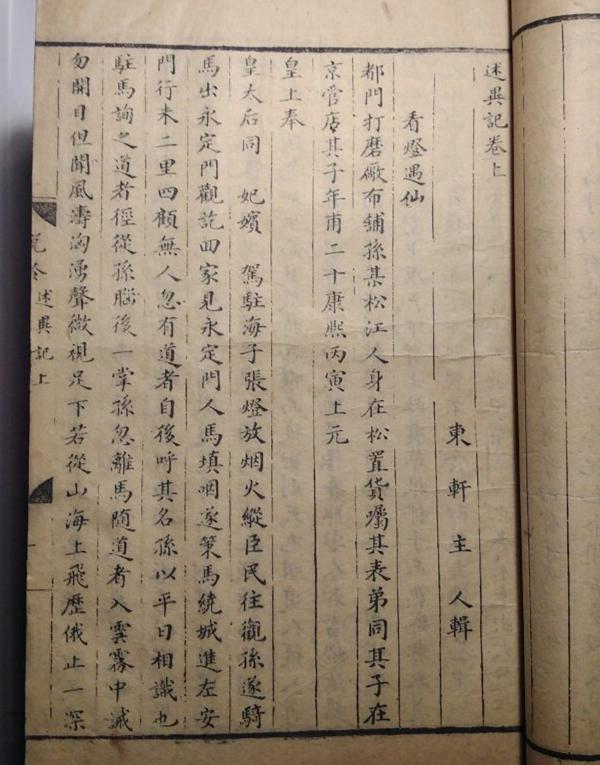 述異記卷上
東軒主人輯
看燈遇仙
都門打磨廠布舖孫某松江人身在松置貨囑其表弟同其子在
京管店其子年甫二十康熙丙寅上元
皇上奉
皇太后同 妃嬪 駕駐海子張燈放烟火縱臣民往觀孫遂騎
馬出永定門觀訖回家見永定門人馬填咽遂策馬繞城進左安
門行未二里四顧無人忽有道者自後呼其名孫以平日相識也
駐馬詢之道者徑從孫腦後一掌孫忽離馬隨道者入雲霧中誡
勿開目但聞風濤洶湧聲微視足下若從山海上飛歷俄止一深
說鈴 述異記上
一